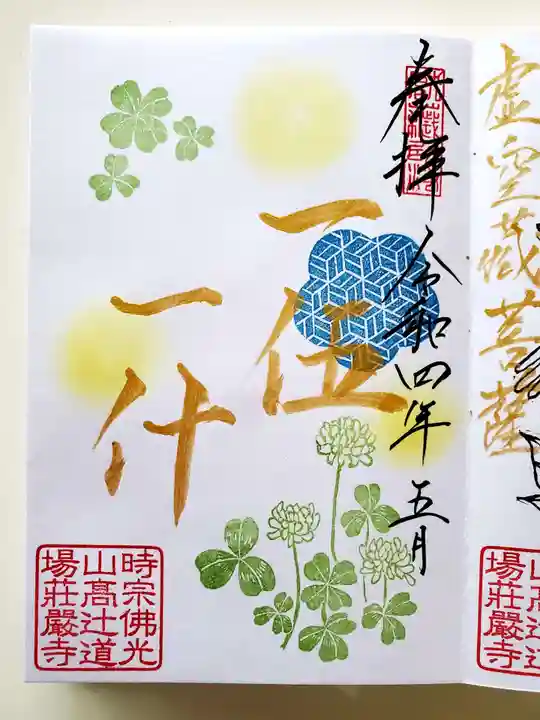 奉拝
令和四年五月
一伍
一什
時宗佛光
山高辻道
場荘嚴寺
虚空蔵菩薩
山高辻道
場荘嚴寺